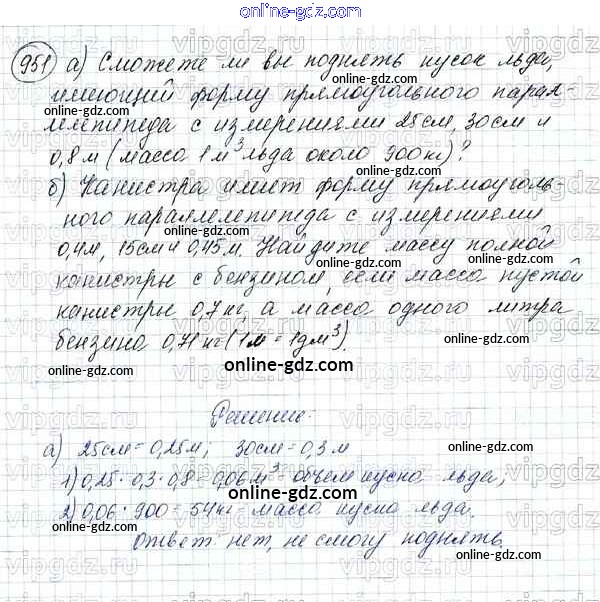 951 а) Сможете ли вы поднять кусок льда,
имеющий форму прямоугольного парал-
лелепипеда с измерениями 25см, 30см и
0,8 м (масса 1м³ льда около 900кг)?
б) Канистра имеет форму прямоуголь
ного параллелепипеда с измерениями
0,4м, 15см и 0,45 м. Найдите массу полной
канистры с бензином, если масса пустой
канистры 0,7 кг, а масса одного литра
бензина 0,71 кг (1л = 1дм³).
Решение:
а) 25см = 0,25м; 30см = 0,3 м
1) 0,25 · 0,3 · 0,8 = 0,06 м³ - объем куска льда;
2) 0,06 · 900 = 54кг - масса куска льда.
Ответ нет, не смогу поднять.
online-gdz.com
vipgdz.ru